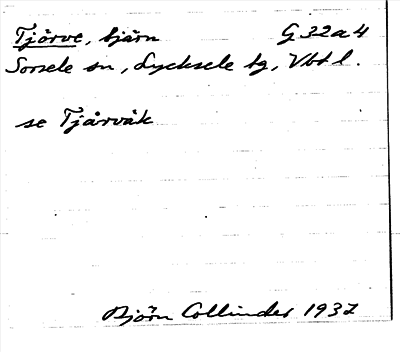 Tjårve, bjärn G 22a4
Sorsele sn, Lycksele tg, Vbtl.
se Tjårvåk
Björn Collinder 1937